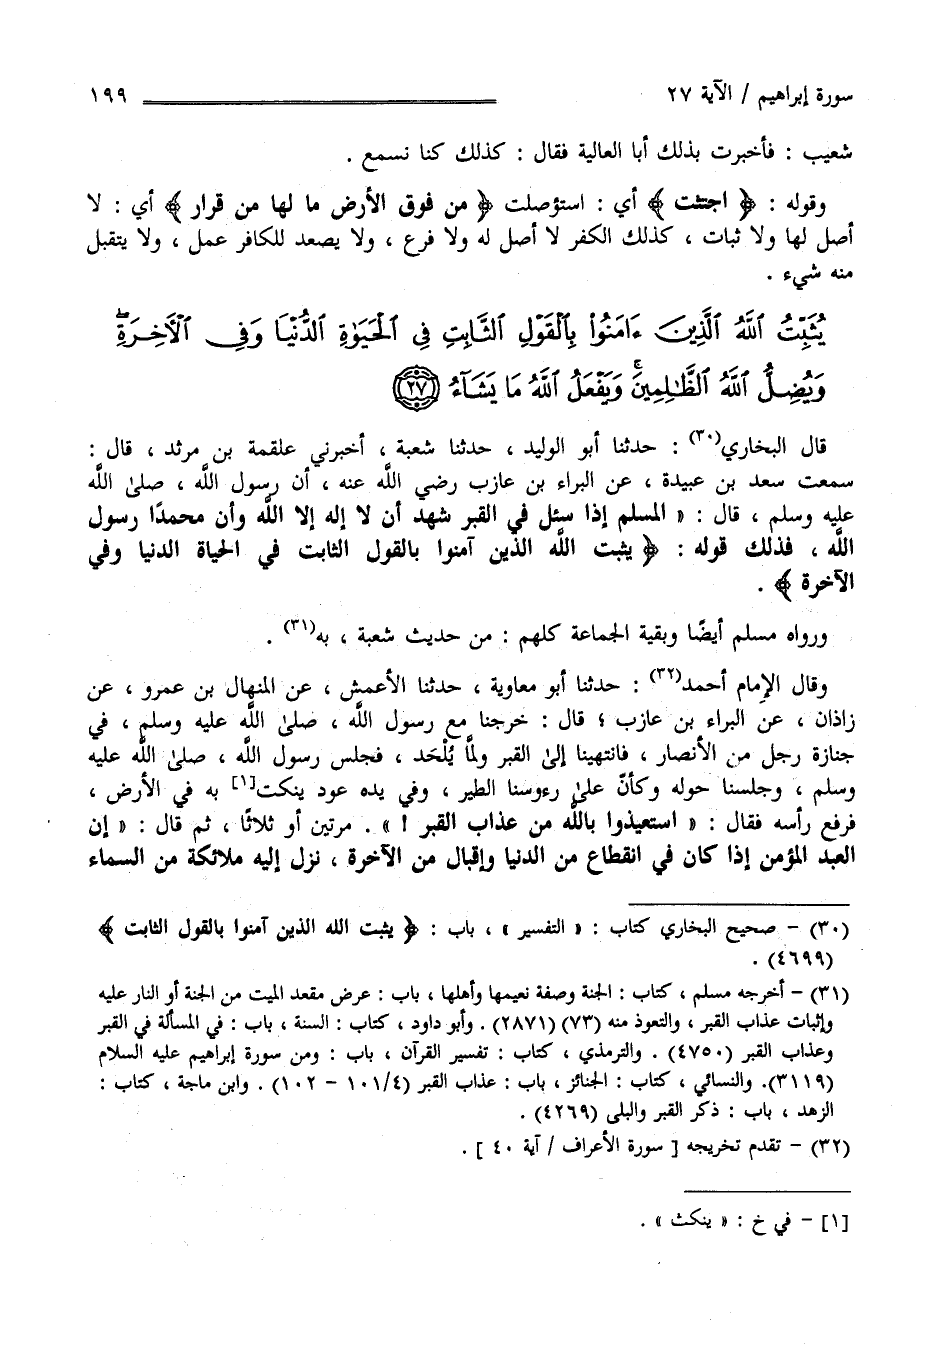 سورة إبراهيم / الآية ٢٧ ١٩٩
شعيب : فأخبرت بذلك أبا العالية فقال : كذلك كنا نسمع .
وقوله : ﴿ اجتثت ﴾ أي : استؤصلت ﴿ من فوق الأرض ما لها من قرار ﴾ أي : لا
أصل لها ولا ثبات ، كذلك الكفر لا أصل له ولا فرع ، ولا يصعد للكافر عمل ، ولا يتقبل
منه شيء .
يُثَبِّتُ ٱللَّهُ ٱلَّذِينَ ءَامَنُوا۟ بِٱلْقَوْلِ ٱلثَّابِتِ فِي ٱلْحَيَوٰةِ ٱلدُّنْيَا وَفِي ٱلْآخِرَةِۖ
وَيُضِلُّ ٱللَّهُ ٱلظَّـٰلِمِينَۚ وَيَفْعَلُ ٱللَّهُ مَا يَشَآءُ ٢٧
قال البخاري(٣٠) : حدثنا أبو الوليد ، حدثنا شعبة ، أخبرني علقمة بن مرثد ، قال :
سمعت سعد بن عبيدة ، عن البراء بن عازب رضي اللَّه عنه ، أن رسول اللَّه ، صلىٰ اللَّه
عليه وسلم ، قال : « المسلم إذا سئل في القبر شهد أن لا إله إلا اللَّه وأن محمدًا رسول
اللَّه ، فذلك قوله : ﴿ يثبت اللَّه الذين آمنوا بالقول الثابت في الحياة الدنيا وفي
الآخرة ﴾ .
ورواه مسلم أيضًا وبقية الجماعة كلهم : من حديث شعبة ، به(٣١) .
وقال الإمام أحمد(٣٢) : حدثنا أبو معاوية ، حدثنا الأعمش ، عن المنهال بن عمرو ، عن
زاذان ، عن البراء بن عازب ؛ قال : خرجنا مع رسول اللَّه ، صلىٰ اللَّه عليه وسلم ، في
جنازة رجل من الأنصار ، فانتهينا إلىٰ القبر ولمَّا يُلْحَد ، فجلس رسول اللَّه ، صلىٰ اللَّه عليه
وسلم ، وجلسنا حوله وكأنّ علىٰ رءوسنا الطير ، وفي يده عود ينكت[١] به في الأرض ،
فرفع رأسه فقال : « استعيذوا باللَّه من عذاب القبر ! » . مرتين أو ثلاثًا ، ثم قال : « إن
العبد المؤمن إذا كان في انقطاع من الدنيا وإقبال من الآخرة ، نزل إليه ملائكة من السماء
(٣٠) - صحيح البخاري كتاب : « التفسير » ، باب : ﴿ يثبت الله الذين آمنوا بالقول الثابت ﴾
(٤٦٩٩) .
(٣١) - أخرجه مسلم ، كتاب : الجنة وصفة نعيمها وأهلها ، باب : عرض مقعد الميت من الجنة أو النار عليه
وإثبات عذاب القبر ، والتعوذ منه (٧٣) (٢٨٧١) . وأبو داود ، كتاب : السنة ، باب : في المسألة في القبر
وعذاب القبر (٤٧٥٠) . والترمذي ، كتاب : تفسير القرآن ، باب : ومن سورة إبراهيم عليه السلام
(٣١١٩). والنسائي ، كتاب : الجنائز ، باب : عذاب القبر (١٠١/٤ - ١٠٢) . وابن ماجة ، كتاب :
الزهد ، باب : ذكر القبر والبلى (٤٢٦٩) .
(٣٢) - تقدم تخريجه [ سورة الأعراف / آية ٤٠ ] .
[١] - في خ : « ينكث » .